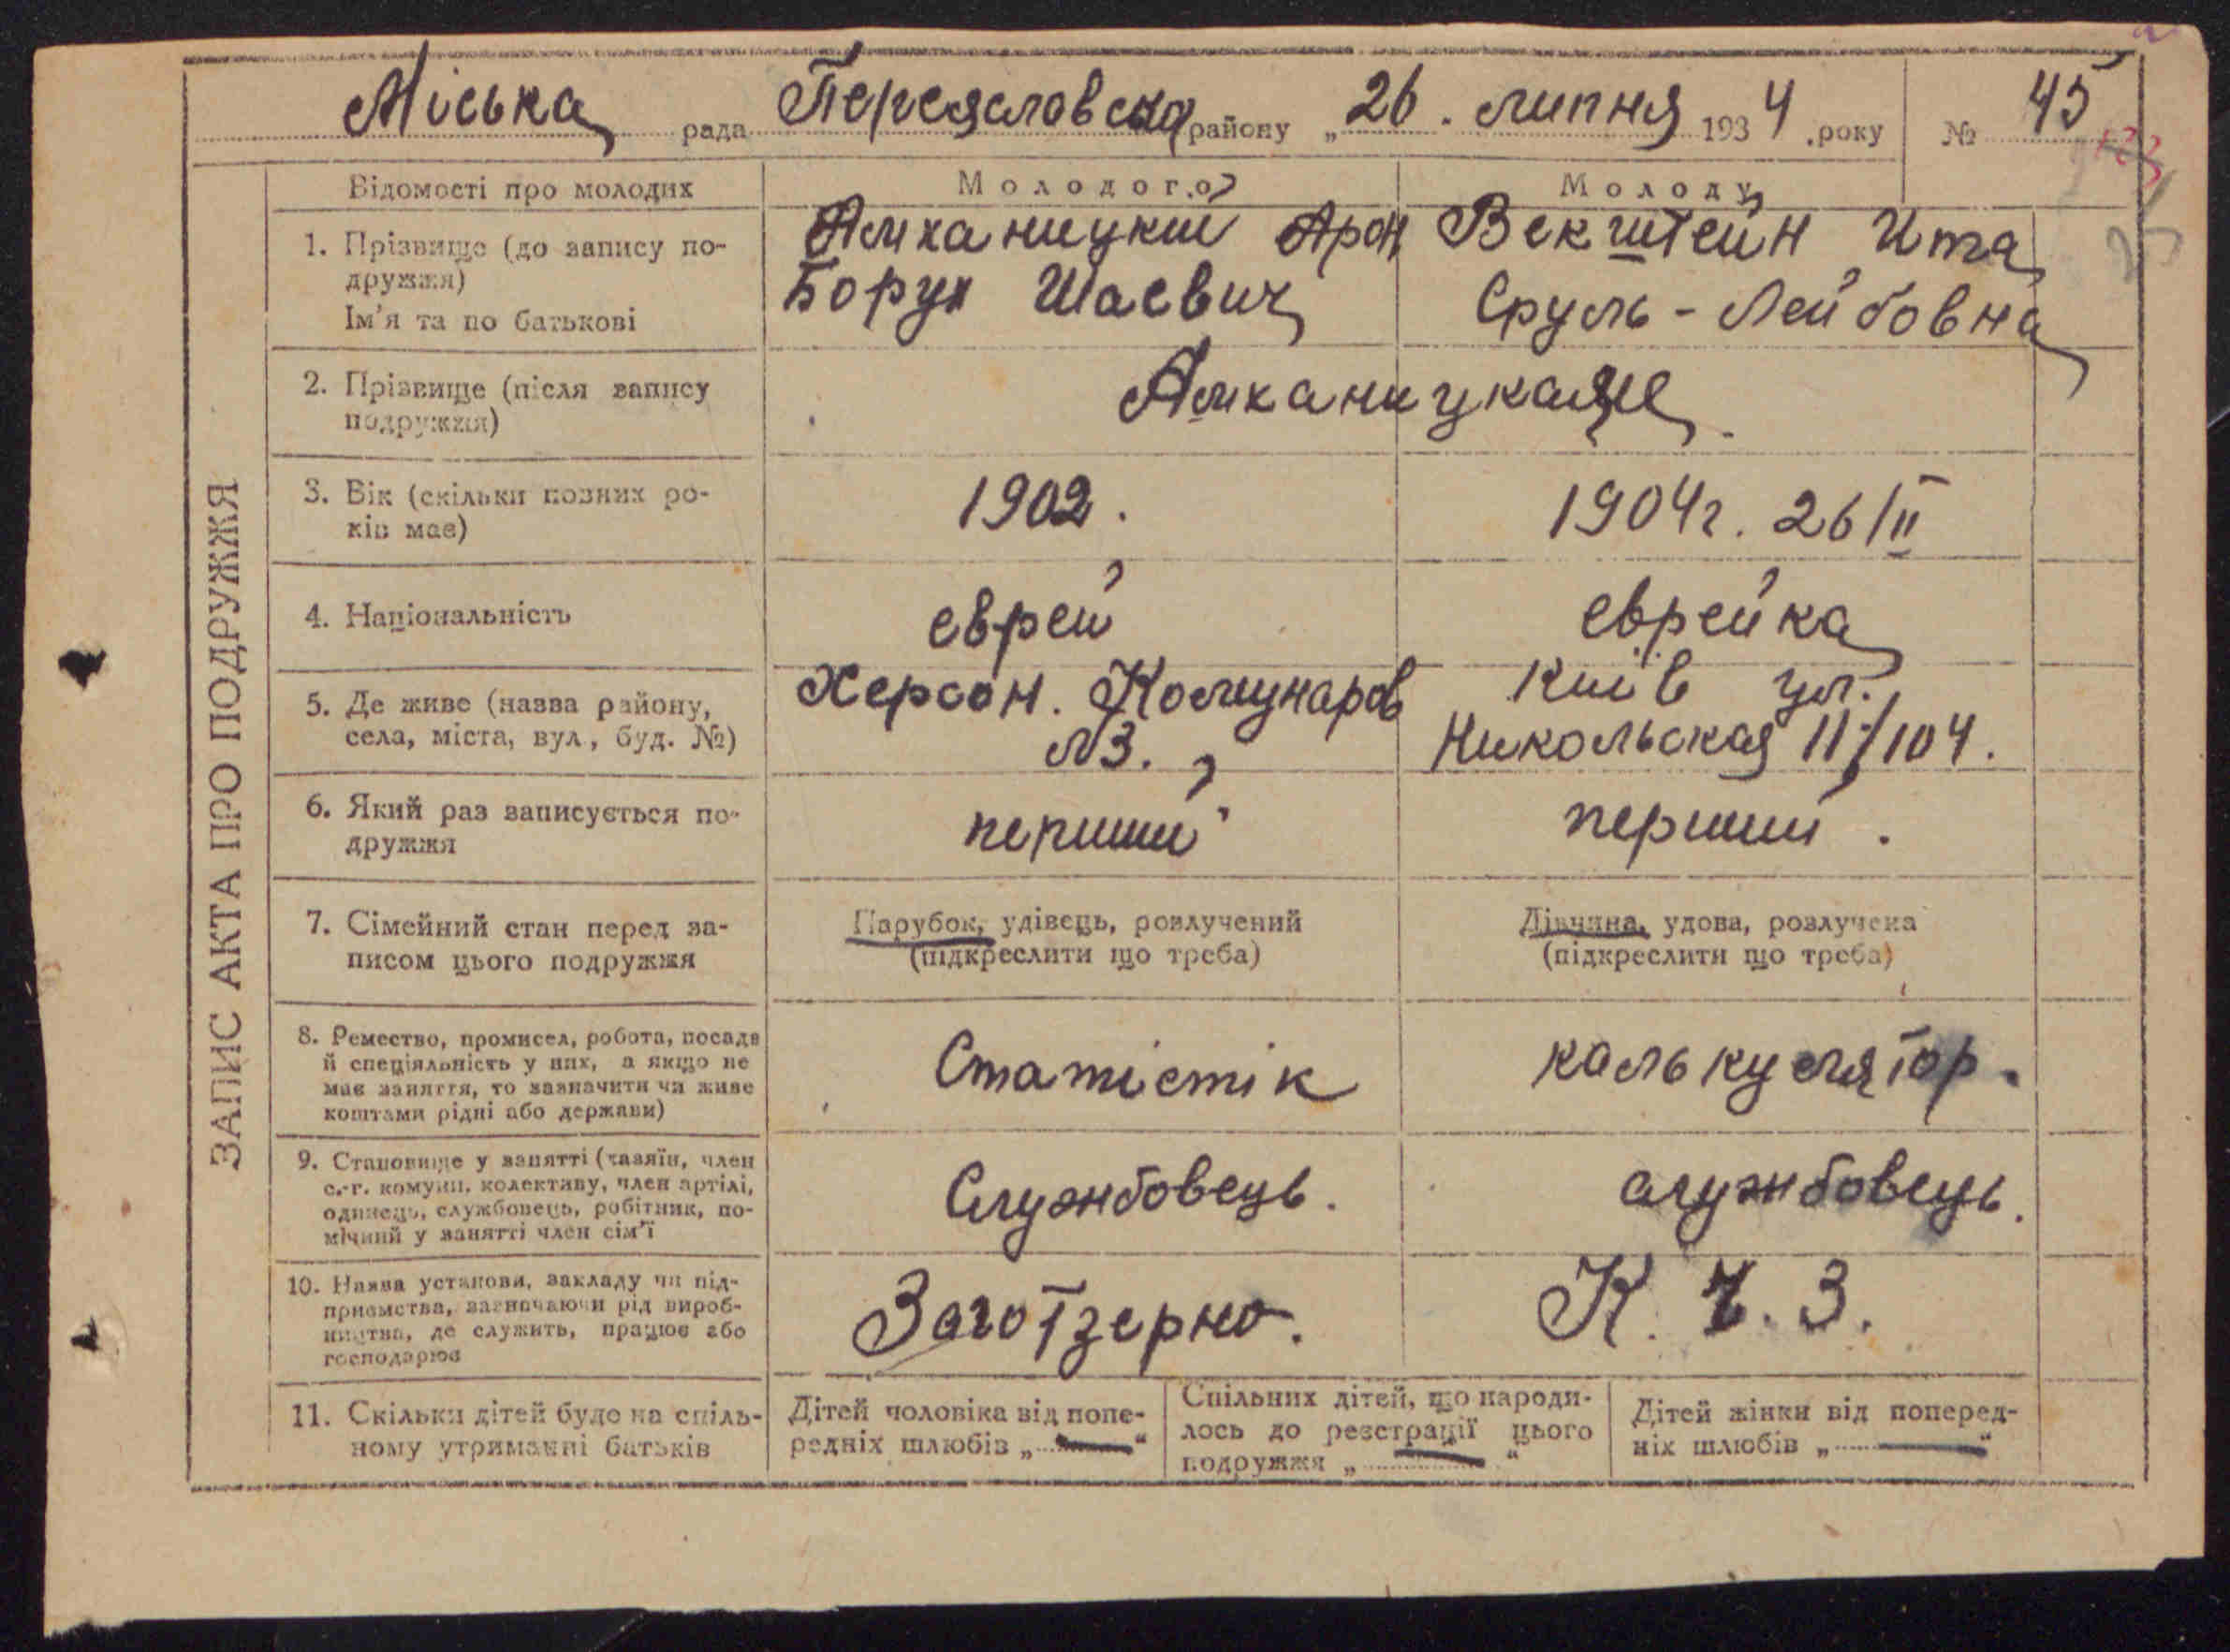 Міська рада Переяславська району „26. липня 1934 року № 45
ЗАПИС АКТА ПРО ПОДРУЖЖЯ
Відомості про молодих Молодого Молоду
1. Прізвище (до запису по-
дружжя)
Ім'я та по батькові
Арон Векштейн Ита
Борух Шаевич Сруль-Лейбовна
2. Прізвище (після запису
подружжя)
3. Вік (скільки повних ро-
ків має)
1902. 1904г. 26/II
4. Національність еврей еврейка
5. Де живе (назва району,
села, міста, вул., буд. №)
Херсон. Комунаров Киів ул.
№3. Никольская 11/104.
6. Який раз записується по-
дружжя
перший перший.
7. Сімейний стан перед за-
писом цього подружжя
Парубок, удівець, розлучений
(підкреслити що треба)
Дівчина, удова, розлучена
(підкреслити що треба)
8. Ремество, промисел, робота, посада
й спеціяльність у них, а якщо не
має заняття, то зазначити чи живе
коштами рідні або держави)
Статістік калькулятор.
9. Становище у занятті (хазяїн, член
с.-г. комуни, колективу, член артілі,
одинець, службовець, робітник, по-
мічний у занятті член сім'ї
Службовець. службовець.
10. Назва установи, закладу чи під-
приємства, зазначаючи рід вироб-
ництва, де служить, працює або
господарює
Заготзерно. К. З.
11. Скільки дітей буде на спіль-
ному утриманні батьків
Дітей чоловіка від попе-
редніх шлюбів „—“
Спільних дітей, що народи-
лось до реєстрації цього
подружжя „—“
Дітей жінки від поперед-
ніх шлюбів „—“